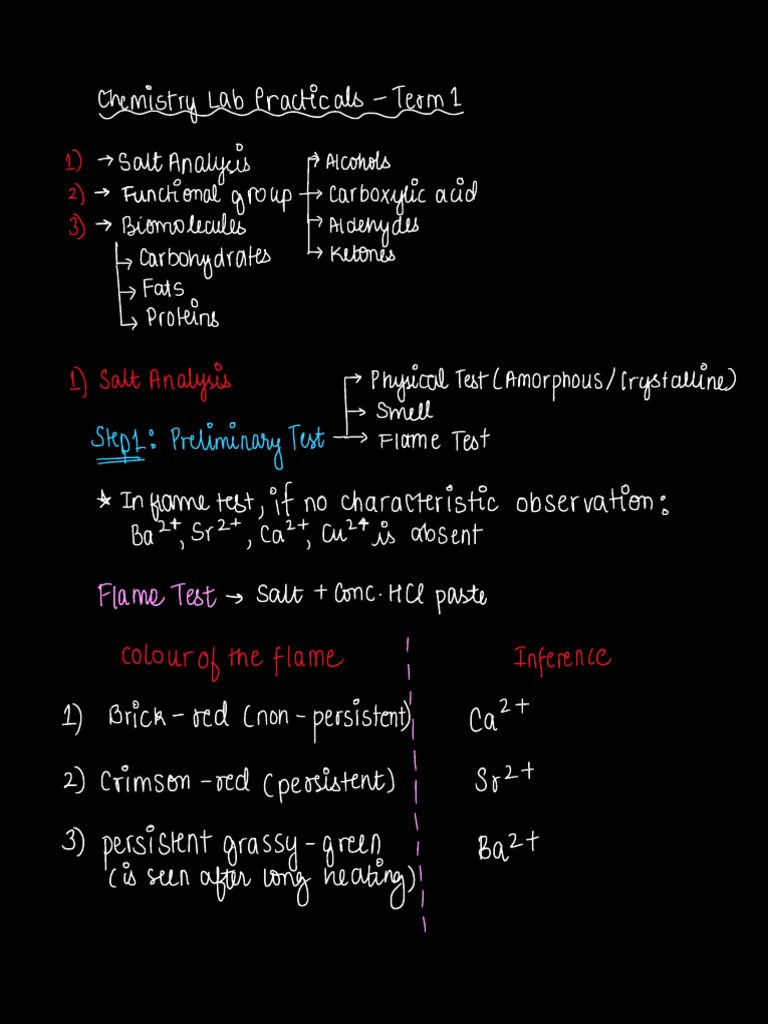 Chemistry Lab Practicals - Term 1
1) → Salt Analysis → Alcohols
2) → Functional group → Carboxylic acid
3) → Biomolecules → Aldehydes
→ Carbohydrates → Ketones
→ Fats
→ Proteins
1) Salt Analysis → Physical Test (Amorphous/Crystalline)
→ Smell
Step1: Preliminary Test → Flame Test
* In flame test, if no characteristic observation:
Ba²⁺, Sr²⁺, Ca²⁺, Cu²⁺ is absent
Flame Test → Salt + Conc. HCl paste
Colour of the flame Inference
1) Brick-red (non-persistent) Ca²⁺
2) Crimson-red (persistent) Sr²⁺
3) persistent grassy-green Ba²⁺
(is seen after long heating)